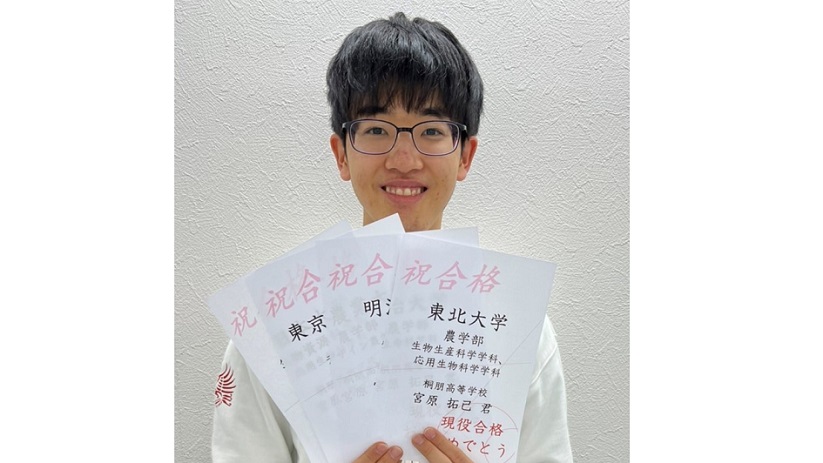 祝
祝合
東京
祝合
明治
祝合格
東北大学
農学部
生物生産科学学科、
応用生物科学学科
桐朋高等学校
宮原 拓己 君
現役合格
めでとう